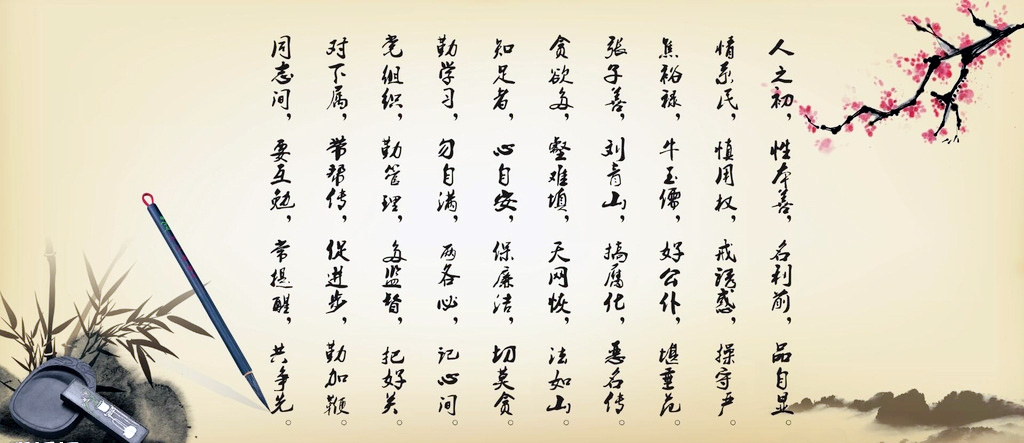 人之初，性本善，名利前，品自显。
情系民，慎用权，戒诱惑，操守严。
焦裕禄，牛玉儒，好公仆，堪垂范。
张子善，刘青山，搞腐化，恶名传。
贪欲多，壑难填，天网恢，法如山。
知足者，心自安，保廉洁，切莫贪。
勤学习，勿自满，两各必，记心间。
党组织，勤管理，多监督，把好关。
对下属，带帮传，促进步，勤加鞭。
同志间，要互勉，常提醒，共争先。